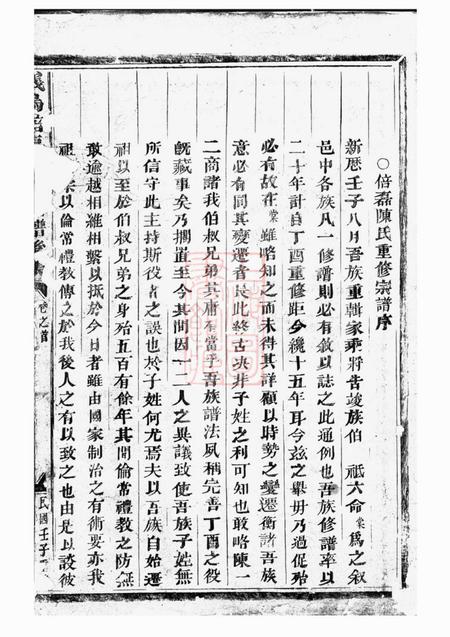 ○倍磊陳氏重修宗譜序
新厯壬子八月吾族重輯家乘將告竣族伯 祇六命棠爲之叙
邑中各族凡一修譜則必有敘以誌之此通例也吾族修譜率以
二十年計自丁酉重修距今纔十五年耳今茲之舉毋乃過促殆
必有故在棠雖略知之而未得其詳顧以時勢之變遷衡諸吾族
意必有同其變遷者長此終古決非子姓之利可知也敢略陳一
二商諸我伯叔兄弟其庸有當乎吾族譜法夙稱完善丁酉之役
旣藏事矣乃擱置至今其間因一二人之異議致使吾族子姓無
所信守此主持斯役者之誤也於子姓何尤焉夫以吾族自始遷
祖以至於伯叔兄弟之身殆五百有餘年其間倫常禮教之防無
敢逾越相維相繫以抵於今日者雖由國家制治之有術要亦我
祖 以倫常禮教傳之於我後人之有以致之也由是以談彼
譜 卷之首
民國壬子